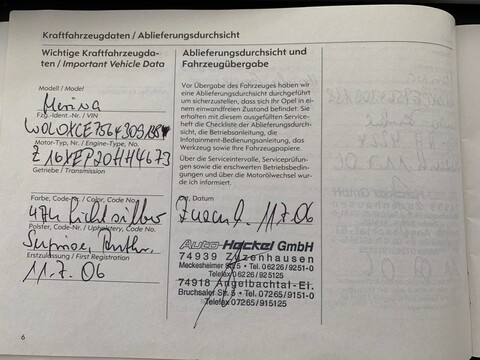 Kraftfahrzeugdaten / Ablieferungsdurchsicht
Wichtige Kraftfahrzeugda-
ten / Important Vehicle Data
Modell / Model
Meriva
Fzg.-Ident.-Nr. / VIN
Motor-Typ, Nr. / Engine-Type, No.
Z16XEP20HH4673
Getriebe / Transmission
Farbe, Code-Nr. / Color, Code No.
474 Lichtsilber
Polster, Code-Nr. / Upholstery, Code No.
Erstzulassung / First Registration
11.7.06
Ablieferungsdurchsicht und
Fahrzeugübergabe
Vor Übergabe des Fahrzeuges haben wir
eine Ablieferungsdurchsicht durchgeführt
um sicherzustellen, dass sich Ihr Opel in
einem einwandfreien Zustand befindet. Sie
erhalten mit diesem ausgefüllten Service-
heft die Checkliste der Ablieferungsdurch-
sicht, die Betriebsanleitung, die
Infotainment-Bedienungsanleitung, das
Werkzeug sowie Ihre Fahrzeugpapiere.
Über die Serviceintervalle, Serviceprüfun-
gen sowie die erschwerten Betriebsbedin-
gungen und über die Motorölwechsel wur-
de ich informiert.
Ort, Datum
11.7.06
Auto-Hackel GmbH
74939 Zuzenhausen
Meckesheimer Str. 5 • Tel. 06226/9251-0
Telefax 06226/925125
74918 Angelbachtal-Ei.
Bruchsaler Str. 5 • Tel. 07265/9151-0
Telefax 07265/915125
6